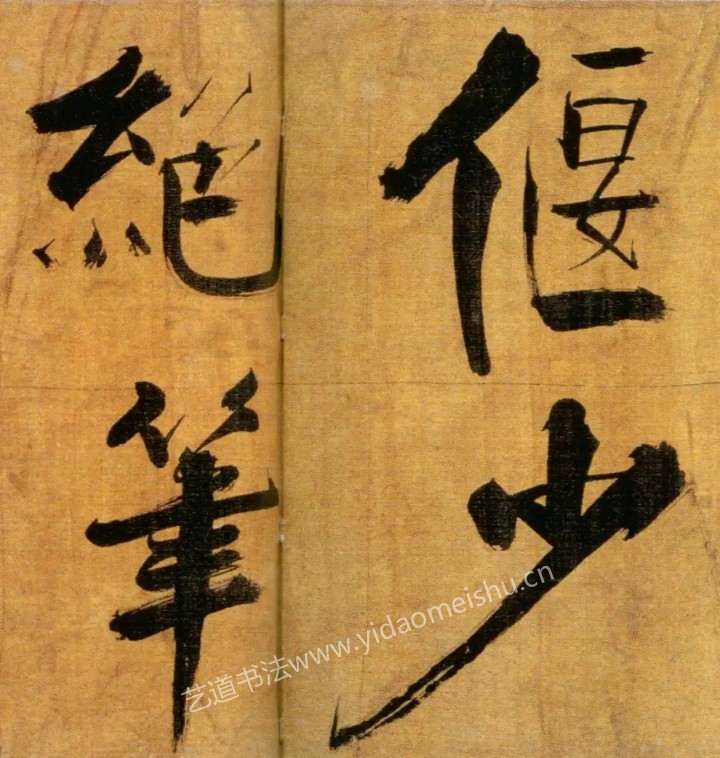 偃少
絕筆
艺道书法www.yidaomeishu.cn